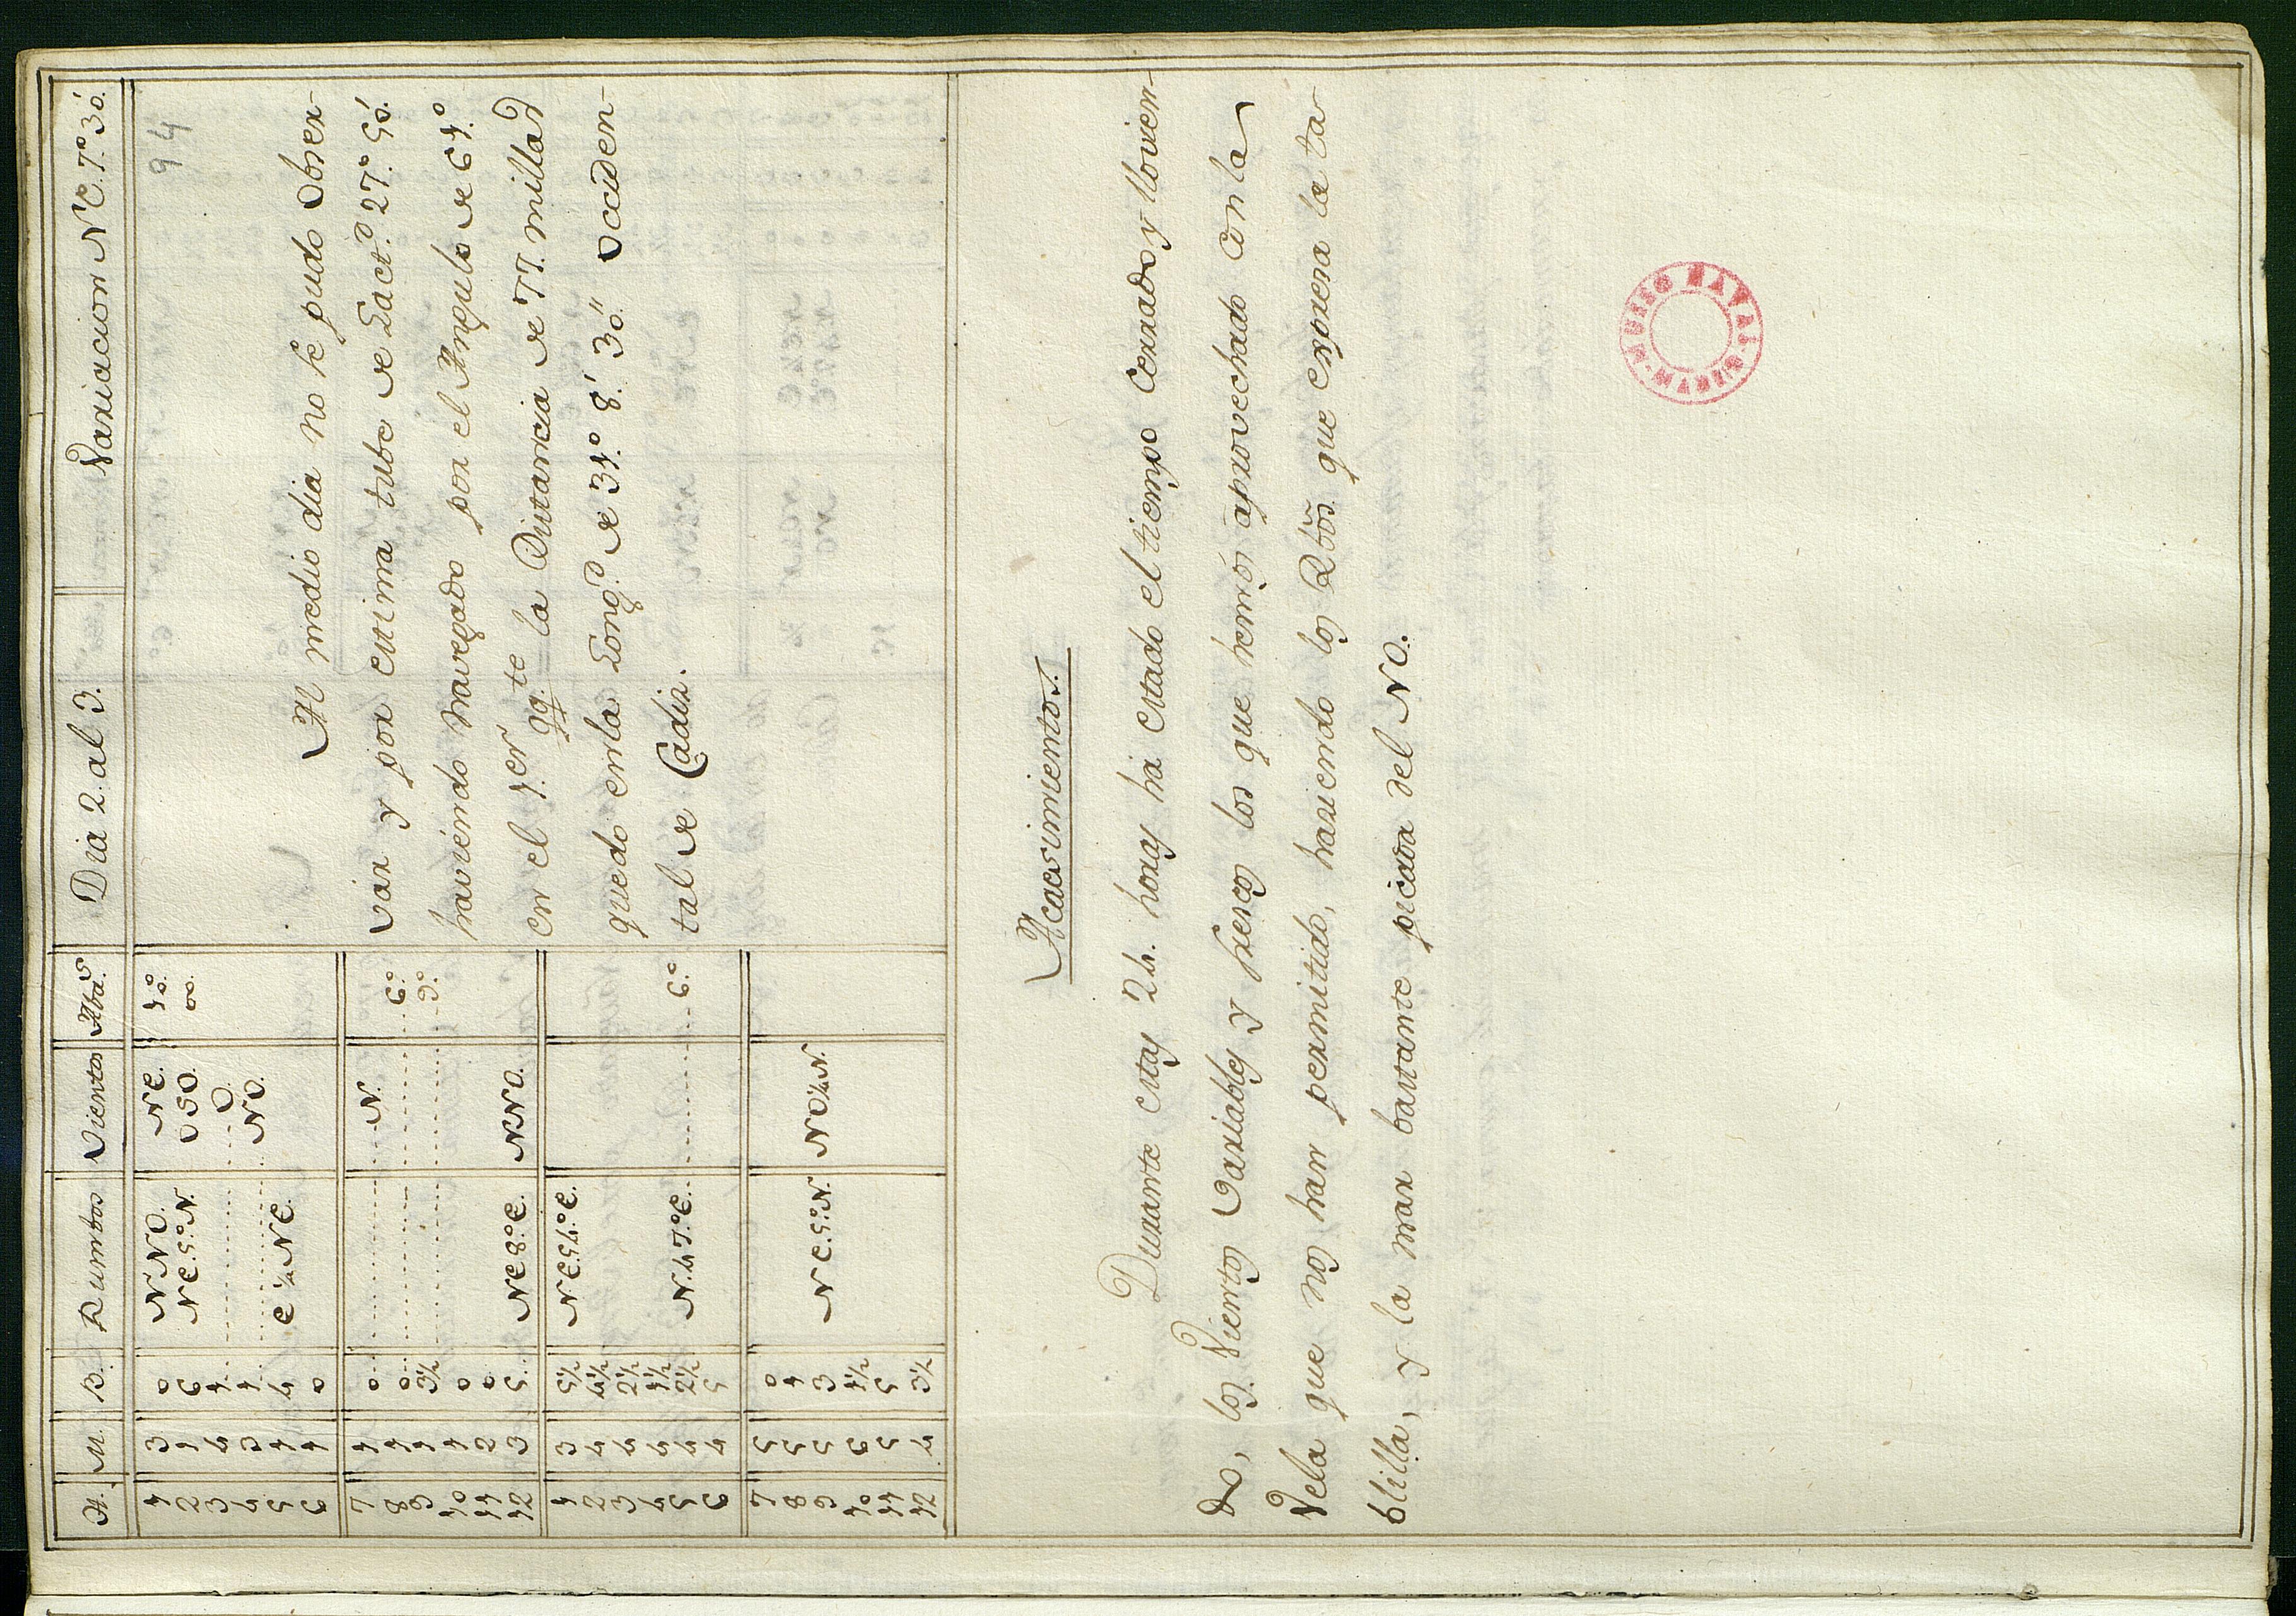 H. M. B. Rumbos Vientos Aba.s Dia 2. al 3. Variacion N.E. 7.° 30.'
94
1 3 0 NNO. NE. 10.
2 1 6 NE.5.°N. OSO. 00.
3 4 1 O.
4 3 1 NO.
5 1 4 E¼NE.
6 1 0
7 1 0 N.
8 1 0 6.°
9 1 3½ 9.°
10 1 0
11 2 0
12 3 5 NE8.°E. NNO.
1 3 5½ NE.54.°E.
2 4 4½
3 4 2½
4 4 1½
5 4 2½ N.47.°E. 6.°
6 4 5
7 5 0
8 5 1
9 5 3 NE.5.°N. NO¼N.
10 6 1½
11 5 5
12 4 3½
Al medio dia no se pudo Obser-
var y por estima tube de Lact.d 27.° 50.'
haviendo navegado por el Angulo de 61.°
en el 1.er qq.te la Distancia de 77. millas
quedo en la Long.d de 31.° 8.' 30." Occiden-
tal de Cadiz.
Acaesimientos.
Durante estas 24. horas ha estado el tiempo Cerrado y llovien-
do, los Vientos Variables y frescos los que hemos aprovechado con la
Vela que nos han permitido, haziendo los Rbõs. que expresa la ta-
blilla, y la mar bastante picada del NO.
MUSEO NAVAL